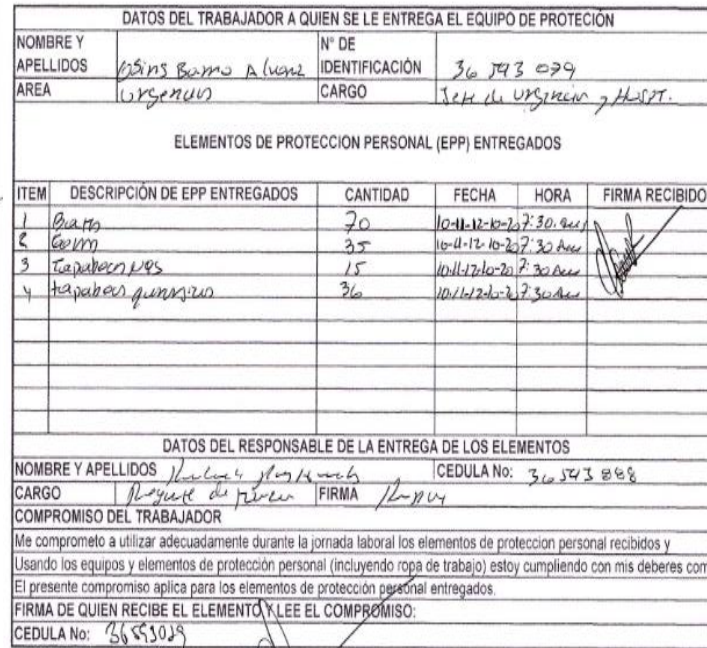 DATOS DEL TRABAJADOR A QUIEN SE LE ENTREGA EL EQUIPO DE PROTECIÓN
NOMBRE Y APELLIDOS Barros Alvarez N° DE IDENTIFICACIÓN
AREA Urgencias CARGO Jefe de Urgencia y Hospt.
ELEMENTOS DE PROTECCION PERSONAL (EPP) ENTREGADOS
ITEM DESCRIPCIÓN DE EPP ENTREGADOS CANTIDAD FECHA HORA FIRMA RECIBIDO
1 Batas 70 10-11-12-10-20 7:30
2 35 10-11-12-10-20 7:30
3 Tapabocas N95 15 10-11-12-10-20 7:30
4 tapabocas 36 10-11-12-10-20 7:30
DATOS DEL RESPONSABLE DE LA ENTREGA DE LOS ELEMENTOS
NOMBRE Y APELLIDOS CEDULA No: 36543888
CARGO FIRMA
COMPROMISO DEL TRABAJADOR
Me comprometo a utilizar adecuadamente durante la jornada laboral los elementos de proteccion personal recibidos y
Usando los equipos y elementos de protección personal (incluyendo ropa de trabajo) estoy cumpliendo con mis deberes com
El presente compromiso aplica para los elementos de protección personal entregados.
FIRMA DE QUIEN RECIBE EL ELEMENTO Y LEE EL COMPROMISO:
CEDULA No: